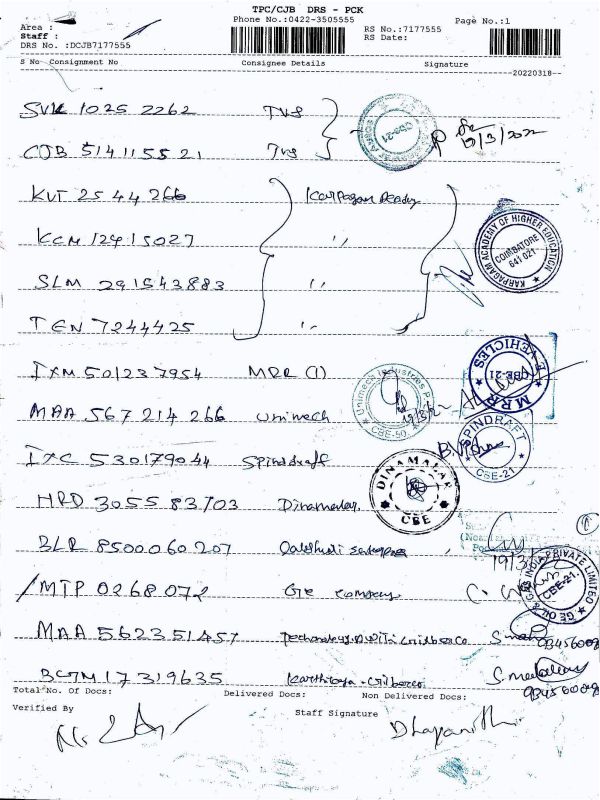 TPC/CJB DRS - PCK
Phone No.:0422-3505555 Page No.:1
Area :
Staff :
DRS No. :DCJB7177555
RS No.:7177555
RS Date:
S No Consignment No Consignee Details Signature
20220318
SVK 1025 2262 TVS
COB 514115521 TVS
KUT 25 44 266 Karpagam
KCM 12415027 "
SLM 291543883 "
TEN 7244425 "
IXM 501237954 MRR (1)
MAA 567 214 266 Unimech
IXC 530179044 Spindraft
HRD 3055 83703 Dinamalar
BLR 8500060207
MTP 0268072 Ge company
MAA 562351457
BCTM 17319635 Karthikaya
KARPAGAM ACADEMY OF HIGHER EDUCATION
COIMBATORE
641 021
MRR VEHICLES
CBE-21
Unimech Industries
CBE-50
SPINDRAFT
CBE-21
DINAMALAR
CBE
GE OIL & GAS INDIA PRIVATE LIMITED
CBE-21
19/3/2022
19/3/22
Total No. Of Docs: Delivered Docs: Non Delivered Docs:
Verified By Staff Signature